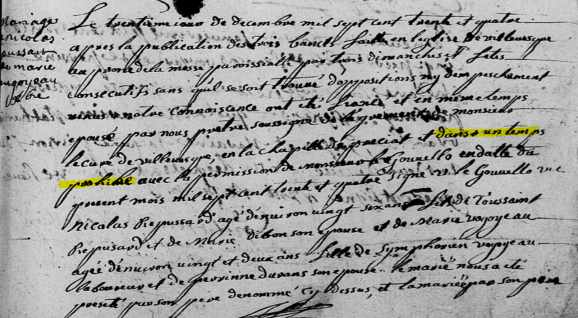 Mariage
nicolas
pussart
de marie
voyeau
Le trentiemejour de decembre mil sept cent trente et quatre
apres la publication des trois bancts faitte en leglise de villevesque
au prone de la messe paroissialle par trois dimanches et fetes
consecutifs sans quil se soit trouvé d'oppositions ny dempeschement
venu a notre connoiscence ont eté fiancé et en meme temps
epousé par nous pretre soussigné de monsieur
le curé de villevesque, en la chapelle de et un temps
prohibé avec la permission de Monsieur le Gouvello endatte du
present mois mil sept cent trente et quatre signé le Gouvello
Nicolas Repussard agé denviron vingt six ans fils de Toussaint
Repusard et de Marie dibon son epouse et de Marie voyeau
agé denviron vingt et deux ans fille de Symphorien voyeau
laboureur et de perrinne durans son epouse. le marié nous a eté
presté par son pere denommé cy dessus, et la mariée par son pere